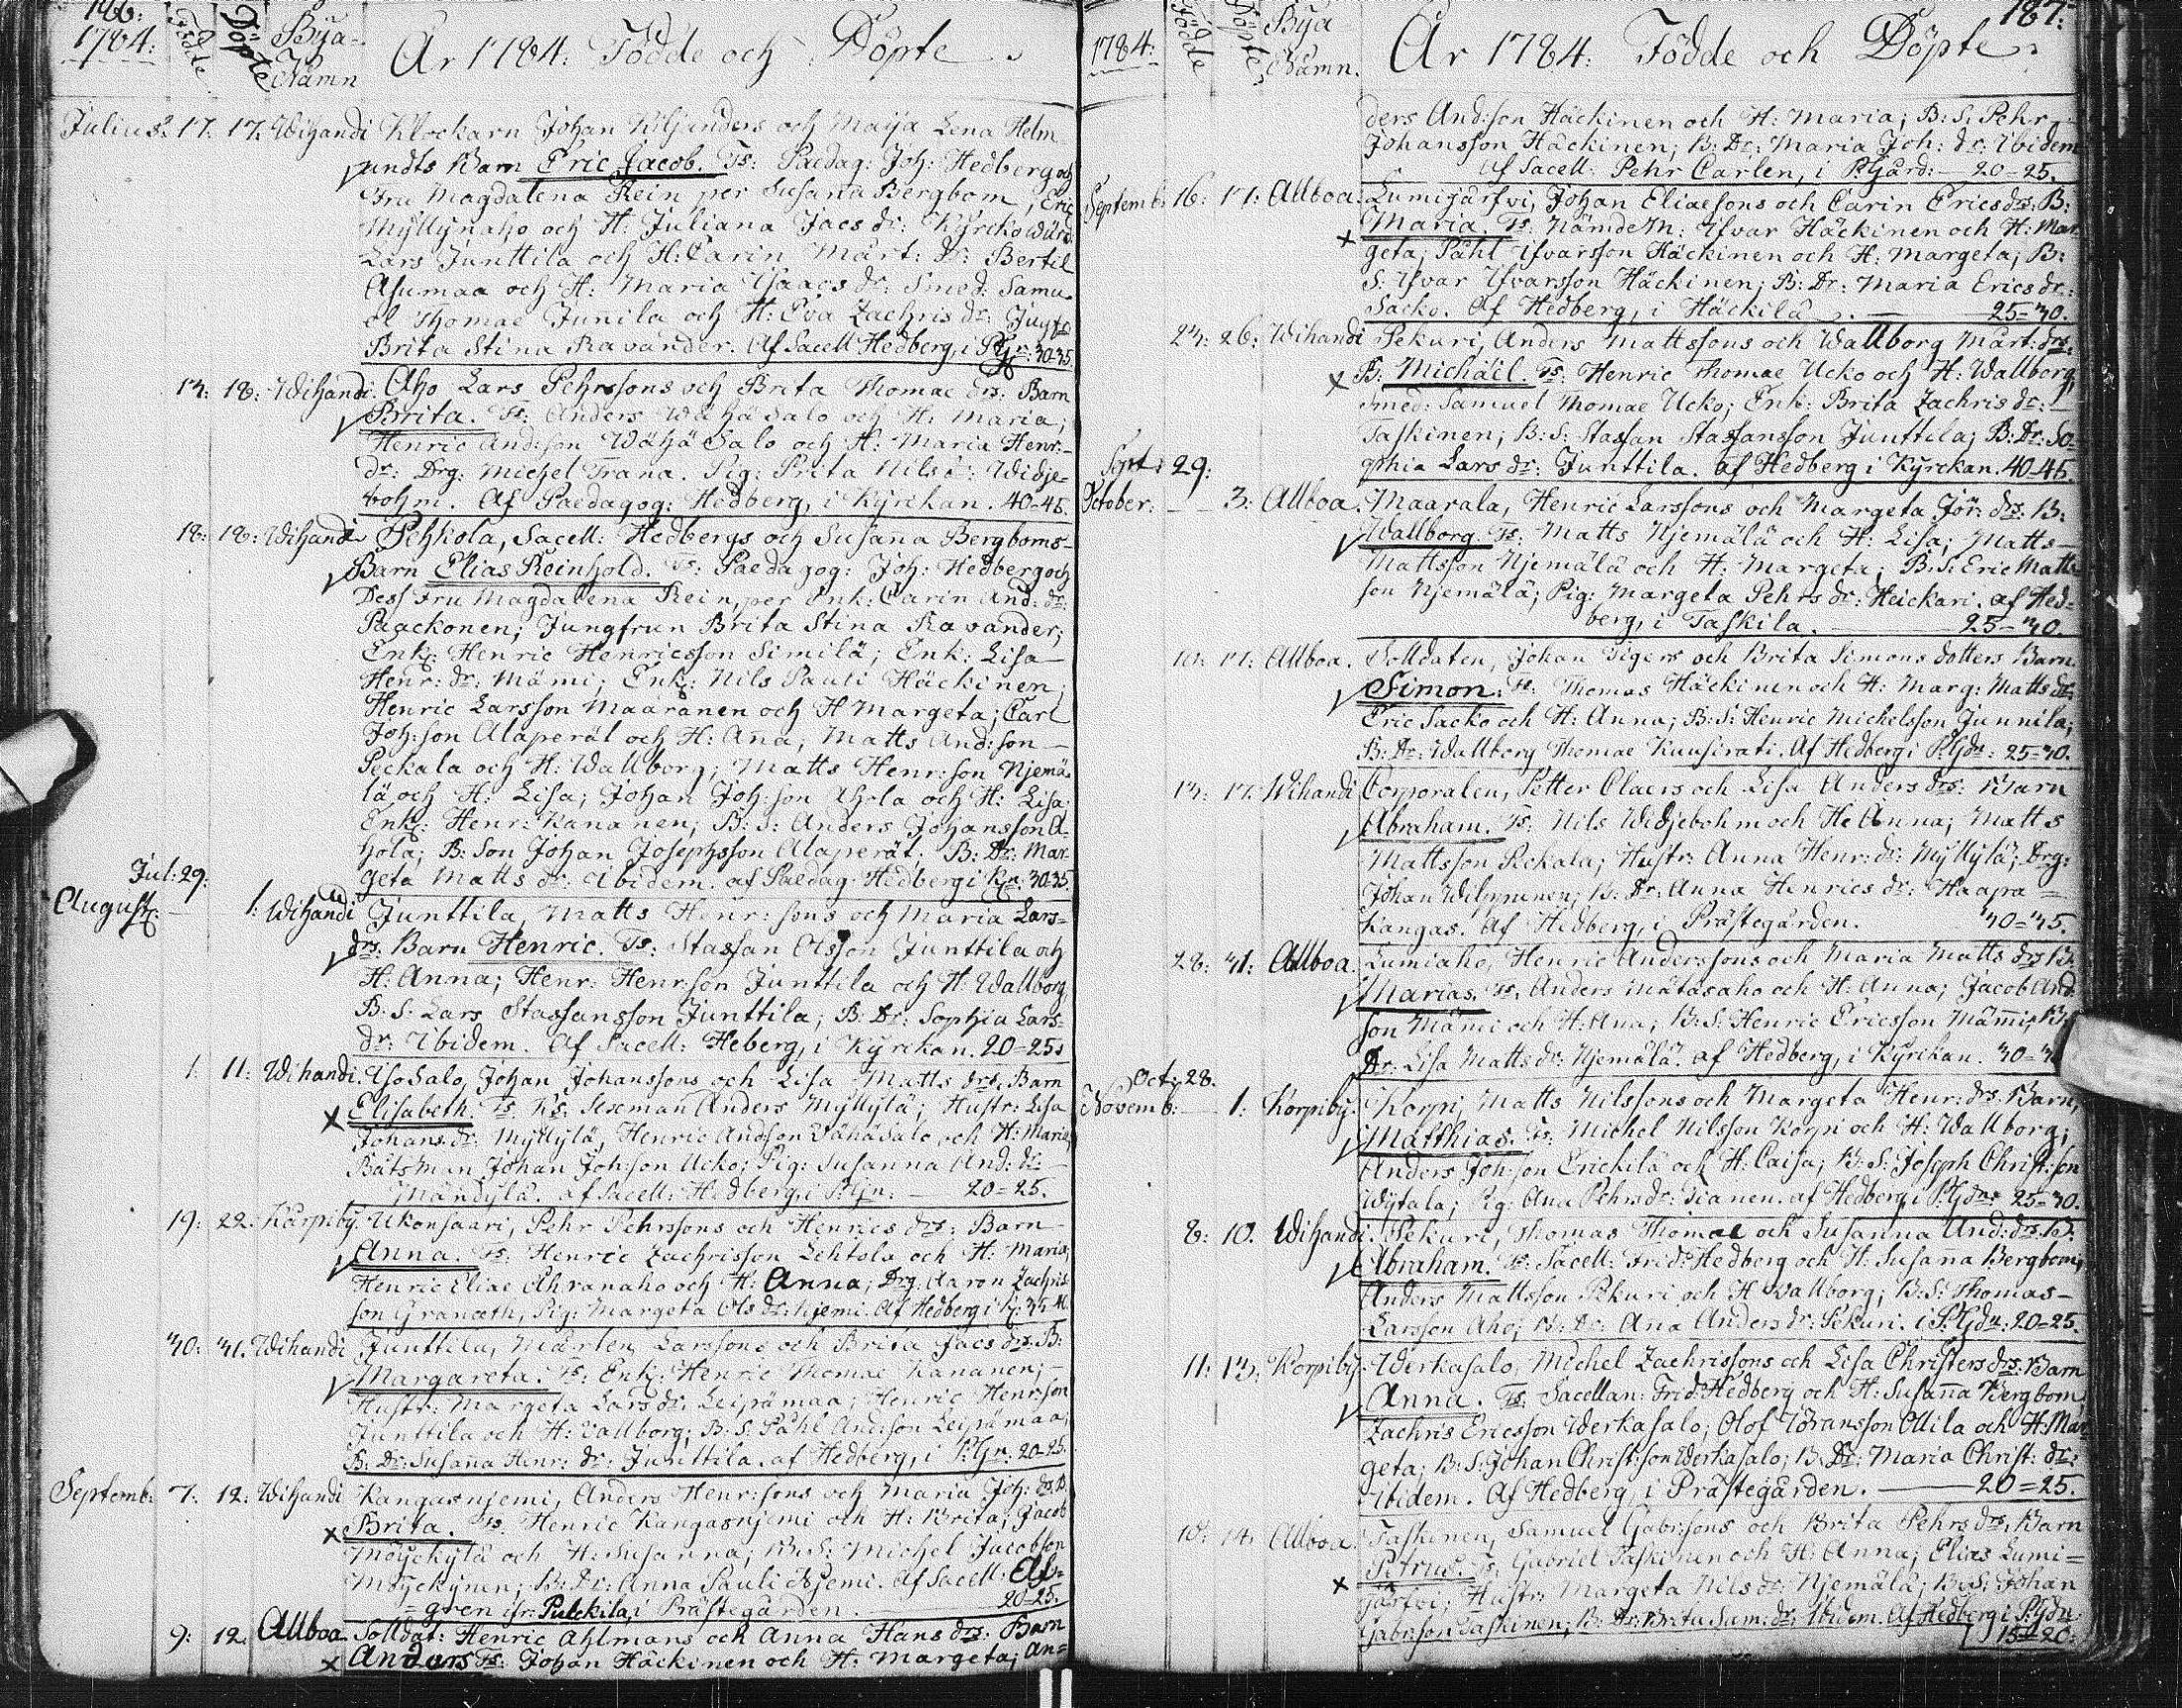 186:
1784: Födde Döpte Bya-Nämn År 1784: Födde och Döpte.
Julius: 17. 17. Wihandi Klockarn Johan Kiljanders och Maija Lena Helm
undts Barn Eric Jacob. Ts: Paedag: Joh: Hedberg och
Fru Magdalena Rein per Susana Bergbom, Eric
Myllynaho och H: Juliana Jacs dr: Kyrckowärd
Lars Junttila och H: Carin Märt: dr: Bertil
Asumaa och H: Maria Isaacs dr: Smed: Samu
el Thomae Junila och H: Eva Zachris dr: Jungfr
Brita Stina Ravander. Af Sacell Hedberg, i PGr: 30-35.
14: 18: Wihandi. Aho Lars Pehrssons och Brita Thomae drs: Barn
Brita. Ts: Anders Wähä Salo och H: Maria;
Henric And:son Wähä Salo och H: Maria Henr:
dr: Drg: Michel Frana. Pig: Brita Nils dr: Widje-
bohm. Af Paedagog: Hedberg, i Kyrckan. 40-45.
18: 18: Wihandi Pehkola, Sacell: Hedbergs och Susana Bergboms
Barn Elias Reinhold. Ts: Paedagog: Joh: Hedberg och
Dess Fru Magdalena Rein, per Enk: Carin And: dr:
Paackonen; Jungfrun Brita Stina Ravander;
Enkl: Henric Henricsson Similä; Enk: Lisa
Henr: dr: Mämi; Enkl: Nils Pauli Häckinen;
Henric Larsson Maaranen och H Margeta; Carl
Joh:son Alaperät och H: Aña, Matts And:son
Peckala och H: Wallborg; Matts Henr:son Njemä
lä och H: Lisa; Johan Joh:son Ahola och H: Lisa
Enkl: Henr: Kananen; B: S: Anders Johansson A-
hola; B: Son Johan Josephsson Alaperät. B: Dr: Mar-
geta Matts dr: Ibidem. af Paedag Hedberg i Kn: 30-35.
Jul: 29:
August: 1: Wihandi Junttila, Matts Henr: sons och Maria Lars-
drs: Barn Henric. Ts: Staffan Olsson Junttila och
H: Anna; Henr: Henr:son Junttila och H: Wallborg
B: S: Lars Staffansson Junttila; B: Dr: Sophia Lars
dr: Ibidem. Af Sacell: Heberg, i Kyrckan. 20=25.
1: 11: Wihandi. Iso Salo, Johan Johanssons och Lisa Matts drs, Barn
Elisabeth. Ts: Anders Myllylä; Hustr: Lisa
Johans dr: Myllylä, Henric Andson Vähäsalo och H: Maria,
Båtsman Johan Joh:son Ucko; Pig: Susanna And: dr:
Mändylä. af Sacell: Hedberg, i PGn: 20=25.
19: 22: Karpiby. Ukonsaari, Pehr Pehrssons och Henrics drs: Barn
Anna. Ts: Henric Zachrisson Lehtola och H: Maria;
Henric Eliae Ahvanaho och H: Anna; Drg. Aaron Zachris
son Granroth, Pig: Margeta Ols dr: Njemi. Af Hedberg i K: 35-40.
30: 31. Wihandi Junttila, Mårten Larssons och Brita Jacs drs: B:
Margareta. Ts: Enkl: Henric Thomae Kananen;
Hustr: Margeta Lars dr: Leipämaa; Henric Henrson
Junttila och H: Wallborg; B: S: Påhl And:son Leipämaa,
B: Dr: Susana Henr: dr: Junttila. af Hedberg, i P:Gr: 20-25.
Septemb: 7: 12: Wihandi Kangasnjemi, Anders Henr:sons och Maria Joh: drs B
Brita. Ts: Henric Kangasnjemi och H: Brita; Jacob
Möyckylä och H: Susanna; B: S: Michel Jacobson
Möyckynen; B: Dr: Anna Pauli Njemi. Af Sacell: Alf-
gren ifr: Pulckila, i Prästegården. 20-25.
9: 12 Allboa Solldat: Henric Ahlmans och Anna Hans drs: Barn
Anders Ts: Johan Häckinen och H: Margeta; An=
187:
1784: Födde Döpte Bya Nämn. År 1784: Födde och Döpte
ders And:son Häckinen och H: Maria; B: S: Pehr
Johansson Häckinen; B: Dr: Maria Joh: dr: Ibidem
af Sacell: Pehr Carlen, i P:Gård: 20-25.
Septemb: 16: 17: Allboa. Lumijärfvi, Johan Eliaesons och Carin Erics drs: B:
Maria. Ts: NämdeM: Ifvar Häckinen och H: Mar
geta; Påhl Ifvarsson Häckinen och H: Margeta; B:
S: Ifvar Ifvarsson Häckinen; B: Dr: Maria Erics dr:
Sacko. Af Hedberg, i Häckilä. 25=30.
24: 26: Wihandi Pekuri, Anders Mattssons och Wallborg Märt: drs:
B: Michäel. Ts: Henric Thomae Ucko och H: Wallborg,
Smed: Samuel Thomae Ucko; Enk: Brita Zachris dr:
Taskinen; B: S: Staffan Staffansson Junttila; B: Dr: So-
phia Lars dr: Junttila. af Hedberg i Kyrckan. 40-45.
Sept: 29:
October. 3: Allboa. Maarala, Henric Larssons och Margeta Jör: drs: B:
Wallborg. Ts: Matts Njemälä och H: Lisa; Matts
Mattsson Njemälä och H: Margeta; B: S: Eric Matts
son Njemälä; Pig: Margeta Pehrs dr: Heickari. af Hed-
berg, i Taskila. 25=30.
17: Allboa. Solldaten, Johan Tigers och Brita Simons dotters Barn.
Simon. Ts: Thomas Häckinen och H: Marg: Matts dr:
Eric Sacko och H: Anna; B: S: Henric Michelsson Junnila;
B: Dr: Wallborg Thomae Kuusirati. Af Hedberg i P:Gdn: 25=30.
14: 17. Wihandi Corporalen, Petter Claers och Lisa Anders drs: Barn
Abraham. Ts: Nils Widjebohm och H: Anna; Matts
Mattsson Pekala; Hustr: Anna Henr: dr: Myllylä; Drg:
Johan Wilppunen; B: Dr: Anna Henrics dr: Haapa=
Kangas. Af Hedberg, i Prästegården. 40=45.
28: 31: Allboa. Lumiaho, Henric Anderssons och Maria Matts drs B:
Marias. Ts: Anders Mätäsaho och H: Anna; Jacob And
son Mämi och H: Ana; B: S: Henric Ericsson Mämi; B:
Dr: Lisa Matts dr: Njemälä. af Hedberg, i Kyrckan.
Oct: 28.
Novemb: 1: Korpiby. Korpi, Matts Nilssons och Margeta Henr: drs: Barn,
Matthias. Ts: Michel Nilsson Korpi och H: Wallborg;
Anders Joh:son Erickilä och H: Caisa; B: S: Joseph Christ:son
Wytala; Pig: Ana Pehrs dr: af Hedberg i P:Gdn: 25=30.
8: 10. Wihandi. Pekuri, Thomas Thomae och Susanna And: drs B:
Abraham. Ts: Sacell: Frid: Hedberg och H: Susana Bergbom;
Anders Mattsson Pekuri och H Wallborg; B: S: Thomas
Larsson Aho; B: Dr: Ana Anders dr: Pekuri. i P:Gdn: 20=25.
11: 13: Korpiby. Werkasalo, Michel Zachrissons och Lisa Christers drs: Barn
Anna. Ts: Sacellan: Frid: Hedberg och H: Susaña Bergbom
Zachris Ericsson Werkasalo; Olof Johansson Ollila och H: Mar
geta; B: S: Johan Christ:son Werkasalo; B. Dr: Maria Christ: dr:
ibidem. Af Hedberg, i Prästegården. 20=25.
14: Allboa. Taskinen, Samuel Gabr:sons och Brita Pehrs drs. Barn
Petrus. Ts: Gabriel Taskinen och H: Anna; Elias Lumi=
järfvi; Hustr: Margeta Nils dr: Njemälä; B: S: Johan
Gabr:son Taskinen; B: Dr: Brita Sam: dr: Ibidem. Af Hedberg i P:Gdn:
15=20: